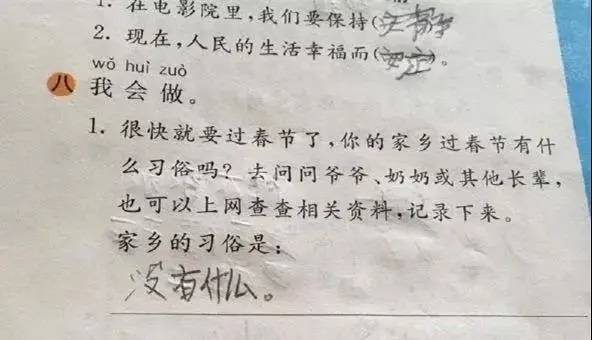 1. 在电影院里，我们要保持(安静
2. 现在，人民的生活幸福而(安定)。
wǒ huì zuò
八 我会做。
1. 很快就要过春节了，你的家乡过春节有什
么习俗吗？去问问爷爷、奶奶或其他长辈，
也可以上网查查相关资料，记录下来。
家乡的习俗是：
没有什么。